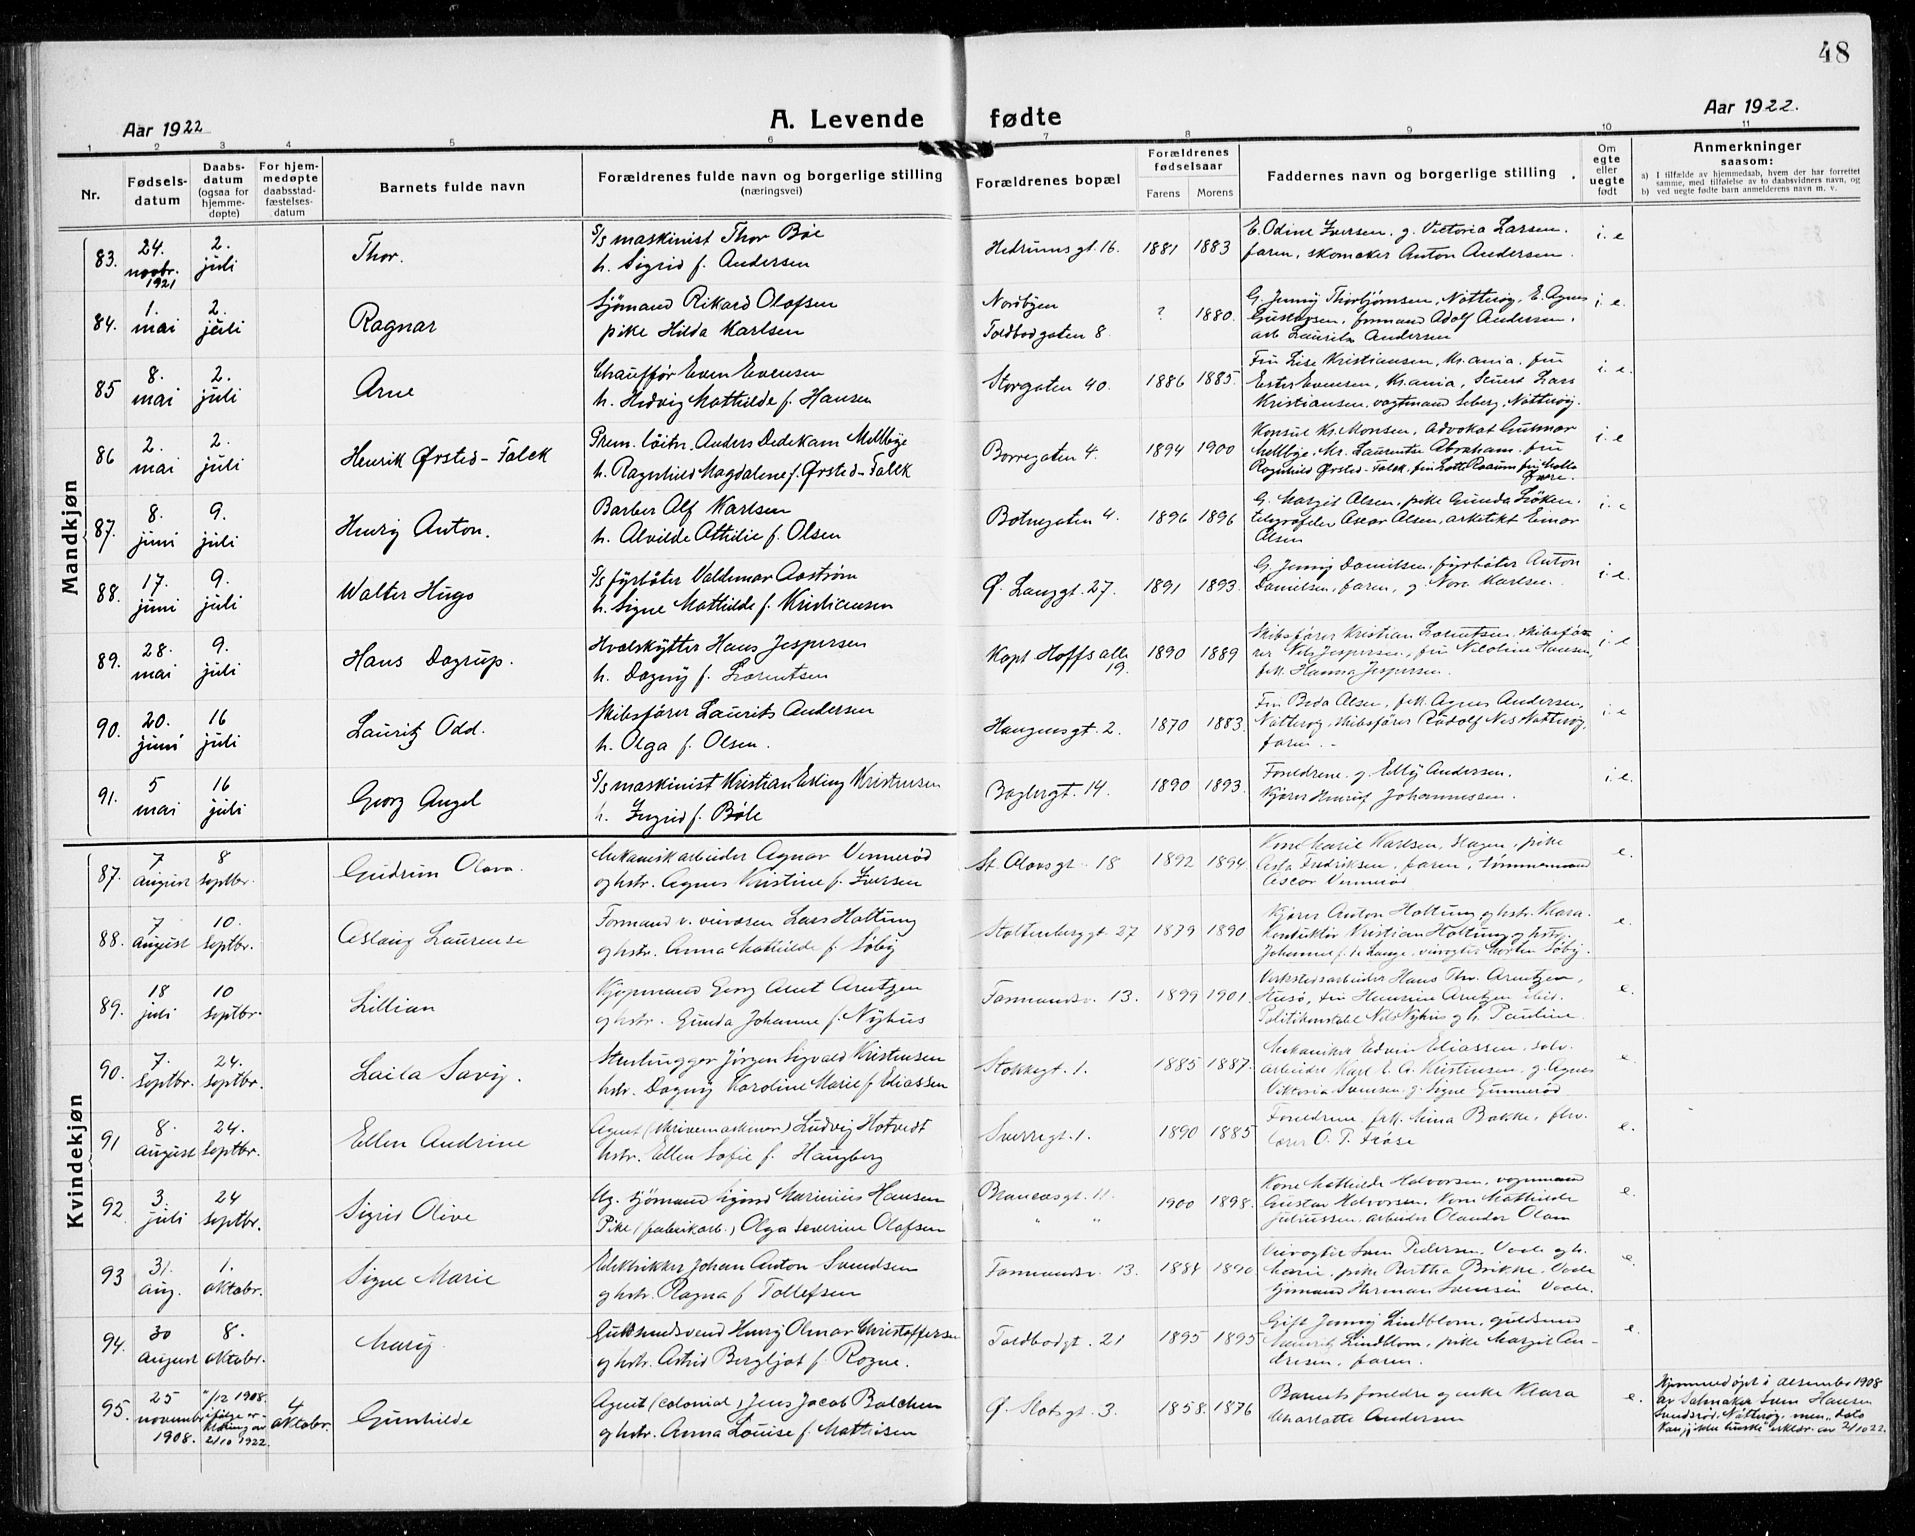 48
Aar 1922
A. Levende fødte
Aar 1922.
1 2 3 4 5 6 7 8 9 10 11
Nr.
Fødsels-
datum
Daabs-
datum
(ogsaa for
hjemme-
døpte)
For hjem-
medøpte
daabsstad-
fæstelses-
datum
Barnets fulde navn
Forældrenes fulde navn og borgerlige stilling
(næringsvei)
Forældrenes bopæl
Forældrenes
fødselsaar
Farens Morens
Faddernes navn og borgerlige stilling
Om
egte
eller
uegte
født
Anmerkninger
saasom:
a) I tilfælde av hjemmedaab, hvem der har forrettet
samme, med tilføielse av to daabsvidners navn, og
b) ved uegte fødte barn anmelderens navn m. v.
Mandkjøn
83. 24. novbr. 1921 2. juli Thor.
S/S maskinist Thor Bøe
h. Sigrid f. Andersen
Hedrumsgt. 16. 1881 1883
E. Odine Iversen, g. Victoria Larsen.
faren, skomaker Anton Andersen.
i. e
84. 1. mai 2. juli Ragnar
Sjømand Rikard Olafsen
pike Hilda Karlsen
Nordbyen
Toldbodgaten 8. ? 1880.
G. Jenny Thorbjørnsen, Nøtterøy, E. Agnes
Gustavsen, formand Adolf Andersen.
arb. Lauritz Andersen
i. e.
85 8. mai 2. juli Arne
Chauffør Even Evensen
h. Hedvig Mathilde f. Hansen
Storgaten 40. 1886 1885.
Fru Lise Kristiansen, Kr.ania. fru
Ester Evensen, Kr.ania, Lars
Kristiansen, vagtmand Seberg, Nøtterøy.
i. e.
86 2. mai 2. juli Henrik Ørsted-Falck
Prem. løitn. Anders Dedekam Mellbye
h. Ragnhild Magdalene f. Ørsted-Falck
Borregaten 4. 1894 1900
Konsul Kr. Monsen, advokat Gunnar
Mellbye, Mr. Laurentz Abraham. fru
Ragnhild Ørsted-Falck. fru Lotte Raaum fru Molla
i. e
87. 8. juni 9. juli Henry Anton.
Barber Alf Karlsen
h. Alvilde Othilie f. Olsen
Botnegaten 4. 1896 1896
G. Margit Olsen, pike Gunda Løken.
telegrafeler Oscar Olsen, arkitekt Einar
Olsen
i. e
88. 17. juni 9. juli Walter Hugo
S/S fyrbøter Valdemar Aastrøm
h. Signe Mathilde f. Kristiansen
Ø. Langgt. 27. 1891 1893.
G. Jenny Danielsen, fyrbøter Anton
Danielsen, faren, g. Nora Karlsen.
i. e.
89. 28. mai 9. juli Hans Dagrup.
Hvalskytter Hans Jespersen
h. Dagny f. Lorentsen
Kapt Hoffs alle
19. 1890 1889
Skibsfører Kristian Lorentsen, skibsfø-
rer Nils Jespersen, fru Nicoline Hansen,
frk. Hanna Jespersen.
i. e
90. 20. juni 16 juli Lauritz Odd.
Skibsfører Laurits Andersen
h. Olga f. Olsen.
Haugensgt. 2. 1870 1883.
Fru Beda Olsen, frk. Agnes Andersen,
Nøtterøy, skibsfører Rudolf Nes Nøtterøy,
faren.
i. e
91. 5 mai 16 juli Georg Angel
S/S maskinist Kristian Erling Kristensen
h. Ingrid f. Bøle
Baglergt. 14. 1890 1893.
Foreldrene, g. Elly Andersen.
Kjører Henrik Johannessen.
i. e.
Kvindekjøn
87. 7 August 8 Septbr. Gudrun Olava.
Mekanisk arbeider Agnar Vennerød
og hstr. Agnes Kristine f. Iversen
St. Olavsgt. 18 1892 1894
Kone Marie Karlsen, Hagen, pike
Asta Fredriksen, faren, tømmermand
Oscar Vennerød
e.
88. 7 August 10. Septbr. Aslaug Laurense
Formand v. veivæsen Lars Holtung
og hstr. Anna Mathilde f. Søby
Stoltenberggt. 27 1879 1890
Kjører Anton Holtung og hstr. Klara.
Konduktør Kristian Holtung og hstr.
Johanne f. de Lange, veivogter Morten Søby.
e.
89. 18 juli 10 Septbr. Lillian
Kjøpmand Georg Arnt Arntzen
og hstr. Gunda Johanne f. Nyhus
Farmandsv. 13. 1899 1901.
Verkstedsarbeider Hans Thv. Arntzen,
Husø, fru Henrine Arntzen ibid.
Politikonstabel Nils Nyhus og h. Pauline.
e.
90. 7. Septbr. 24. Septbr. Laila Savy.
Stenhugger Jørgen Sigvald Kristensen
hstr. Dagny Karoline Marie f Eliassen
Stokkegt. 1. 1885 1887.
Mekaniker Edvin Eliassen, sølv-
arbeider Karl E. A. Kristensen, g. Agnes
Viktoria Svensen, g. Signe Gunnerød
e.
91 8. August 24. Septbr. Ellen Andrine
Agent (skrivemaskiner) Ludvig Hotvedt
hstr. Ellen Sofie f. Haugberg
Sverregt. 1. 1890 1885
Foreldrene, frk. Mina Bakke,
lærer O. T. Frøse
e.
92. 3. juli 24 Septbr. Sigrid Olive
Ug. sjømand Marinius Hansen
Pike (fabrikarb.) Olga Severine Olafsen
Branæsgt. 11.
" " 1900 1898.
Kone Mathilde Halvorsen, vognmand
Gustav Halvorsen, Kone Mathilde
Juliussen, arbeider Olander Olsen
e.
93 31. Aug. 1. oktobr. Signe Marie
Elektrikker Johan Anton Svendsen
og hstr. Ragna f Tollefsen
Farmandsv. 13. 1884 1890
Veivogter Sven Pedersen, Vaale og h.
Marie, pike Bertha Brikke, Vaale
sjømand Herman Svensen Vaale.
e.
94. 30 August 8. oktobr. Mary.
Guldsmedsvend Henry Olmar Christoffersen
og hstr. Astrid Bergljot f. Rogne.
Toldbodgt. 21 1895 1895
Gift Jenny Lindblom, guldsmed
Henrik Lindblom, pike Margit An-
dresen, faren.
e.
95. 25 november 1908. 11/12 1908. ifølge er-
klæring av
2/10 1922. 4 oktobr. Gunhilde
Agent (colonial) Jens Jacob Balchen
og hstr. Anna Louise f. Mathisen
Ø. Slotsgt. 3. 1858. 1876
Barnets foreldre og enke Klara
Charlotte Andersen
e.
Hjemmedøpt i desember 1908
av Salmaker Sven Hansen
Sundrød, Nøtterøy, men "dato
kan jeg ikke huske" erklær. av 2/10 22.